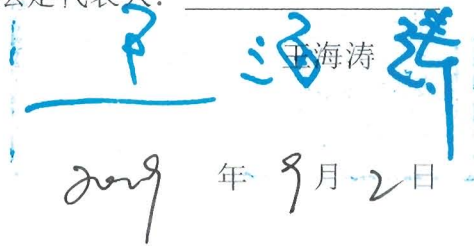 法定代表人：
王海涛
2029年9月2日